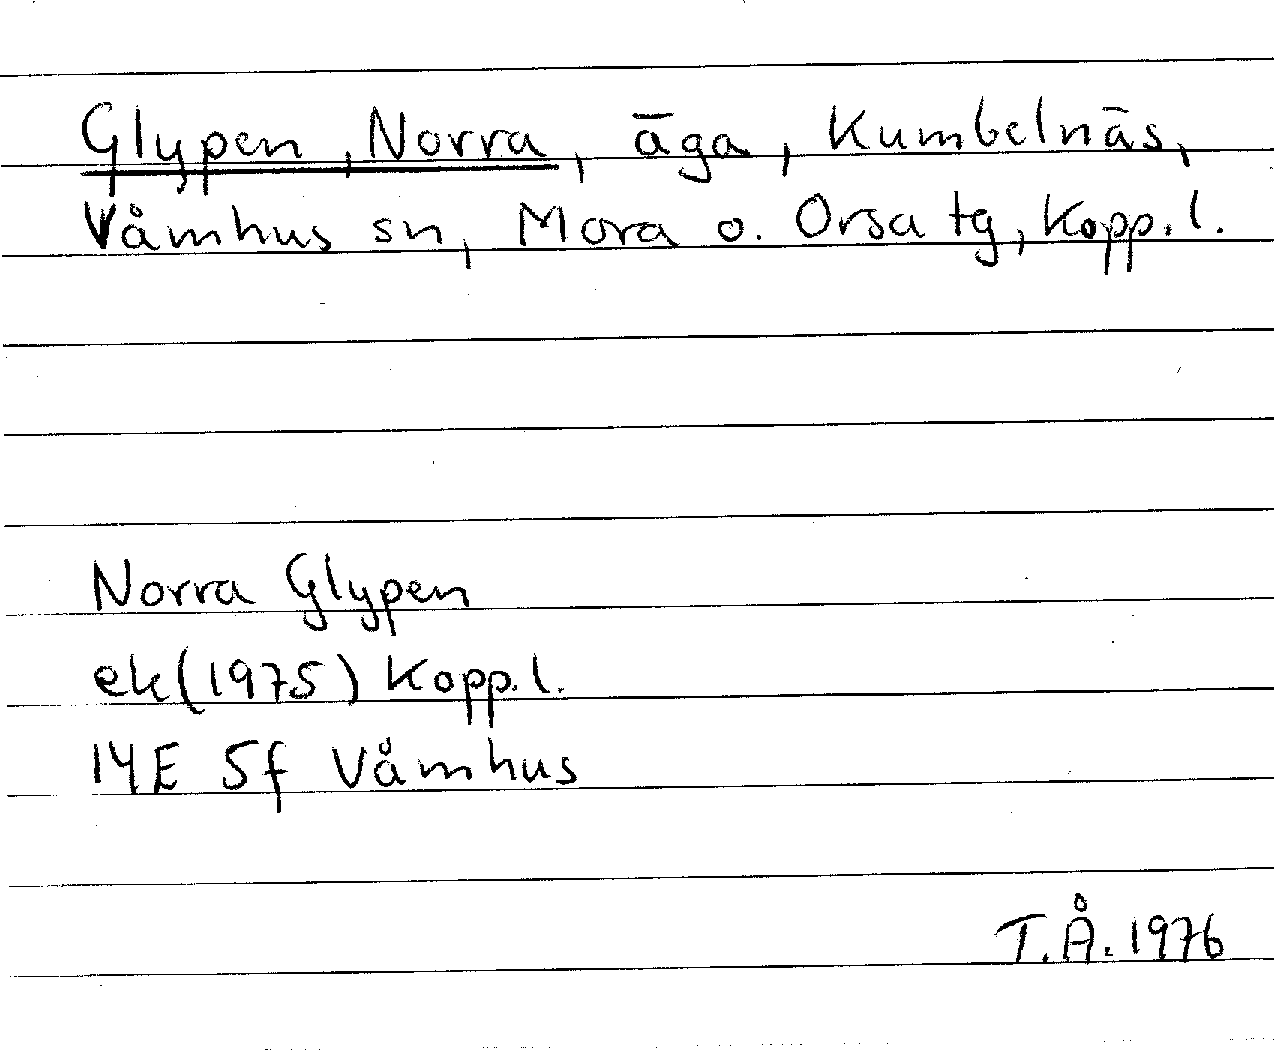 Glypen, Norra, äga, Kumbelnäs,
Våmhus sn, Mora o. Orsa tg, Kopp. l.
Norra Glypen
ek (1975) Kopp. l.
14E 5f Våmhus
T.Å. 1976